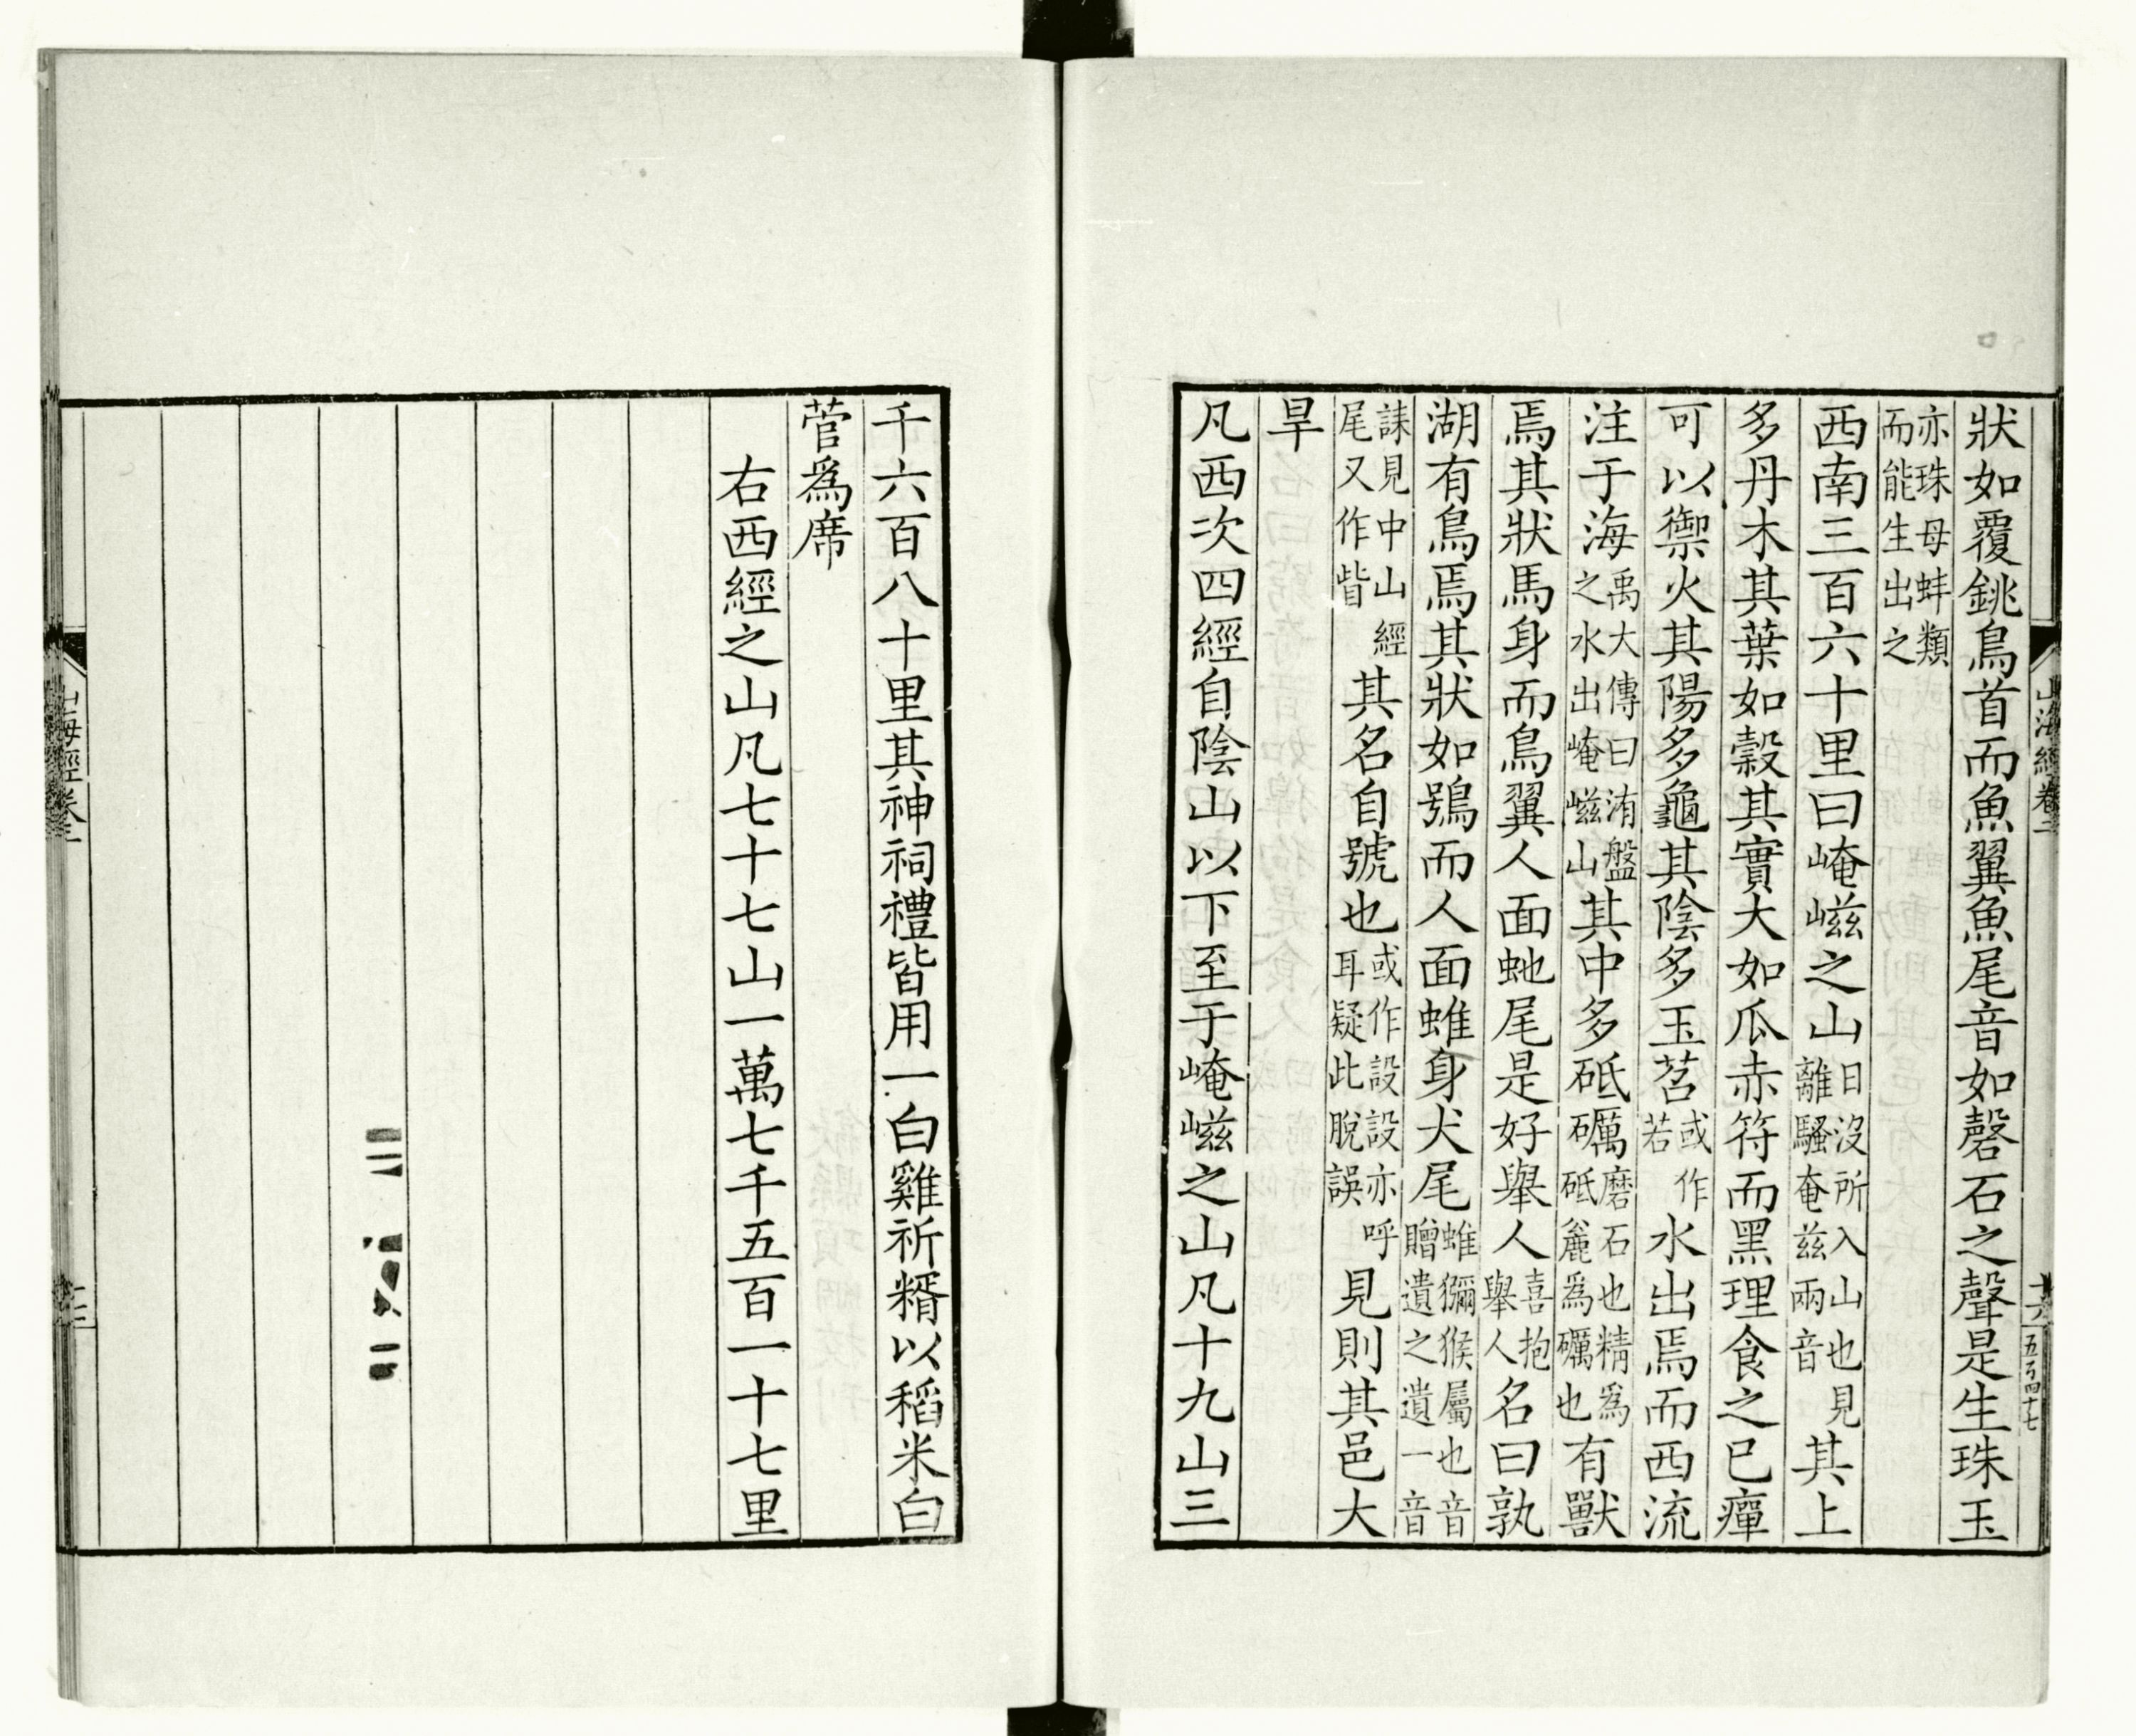 狀如覆銚鳥首而魚翼魚尾音如磬石之聲是生珠玉
亦珠母蚌類而能生出之
西南三百六十里曰崦嵫之山日沒所入山也見離騷奄兹兩音其上
多丹木其葉如榖其實大如瓜赤符而黑理食之已癉
可以禦火其陽多龜其陰多玉苕或作若水出焉而西流
注于海禹大傳曰洧盤之水出崦嵫山其中多砥礪磨石也精爲砥麄爲礪也有獸
焉其狀馬身而鳥翼人面虵尾是好舉人喜抱舉人名曰孰
湖有鳥焉其狀如鴞而人面蜼身犬尾蜼獼猴屬也音贈遺之遺一音
誄見中山經尾又作眥其名自號也或作設設亦呼耳疑此脫誤見則其邑大
旱
凡西次四經自陰山以下至于崦嵫之山凡十九山三
山海經卷二
十六
五百四十七
千六百八十里其神祠禮皆用一白雞祈糈以稻米白
菅爲席
右西經之山凡七十七山一萬七千五百一十七里
山海經卷二